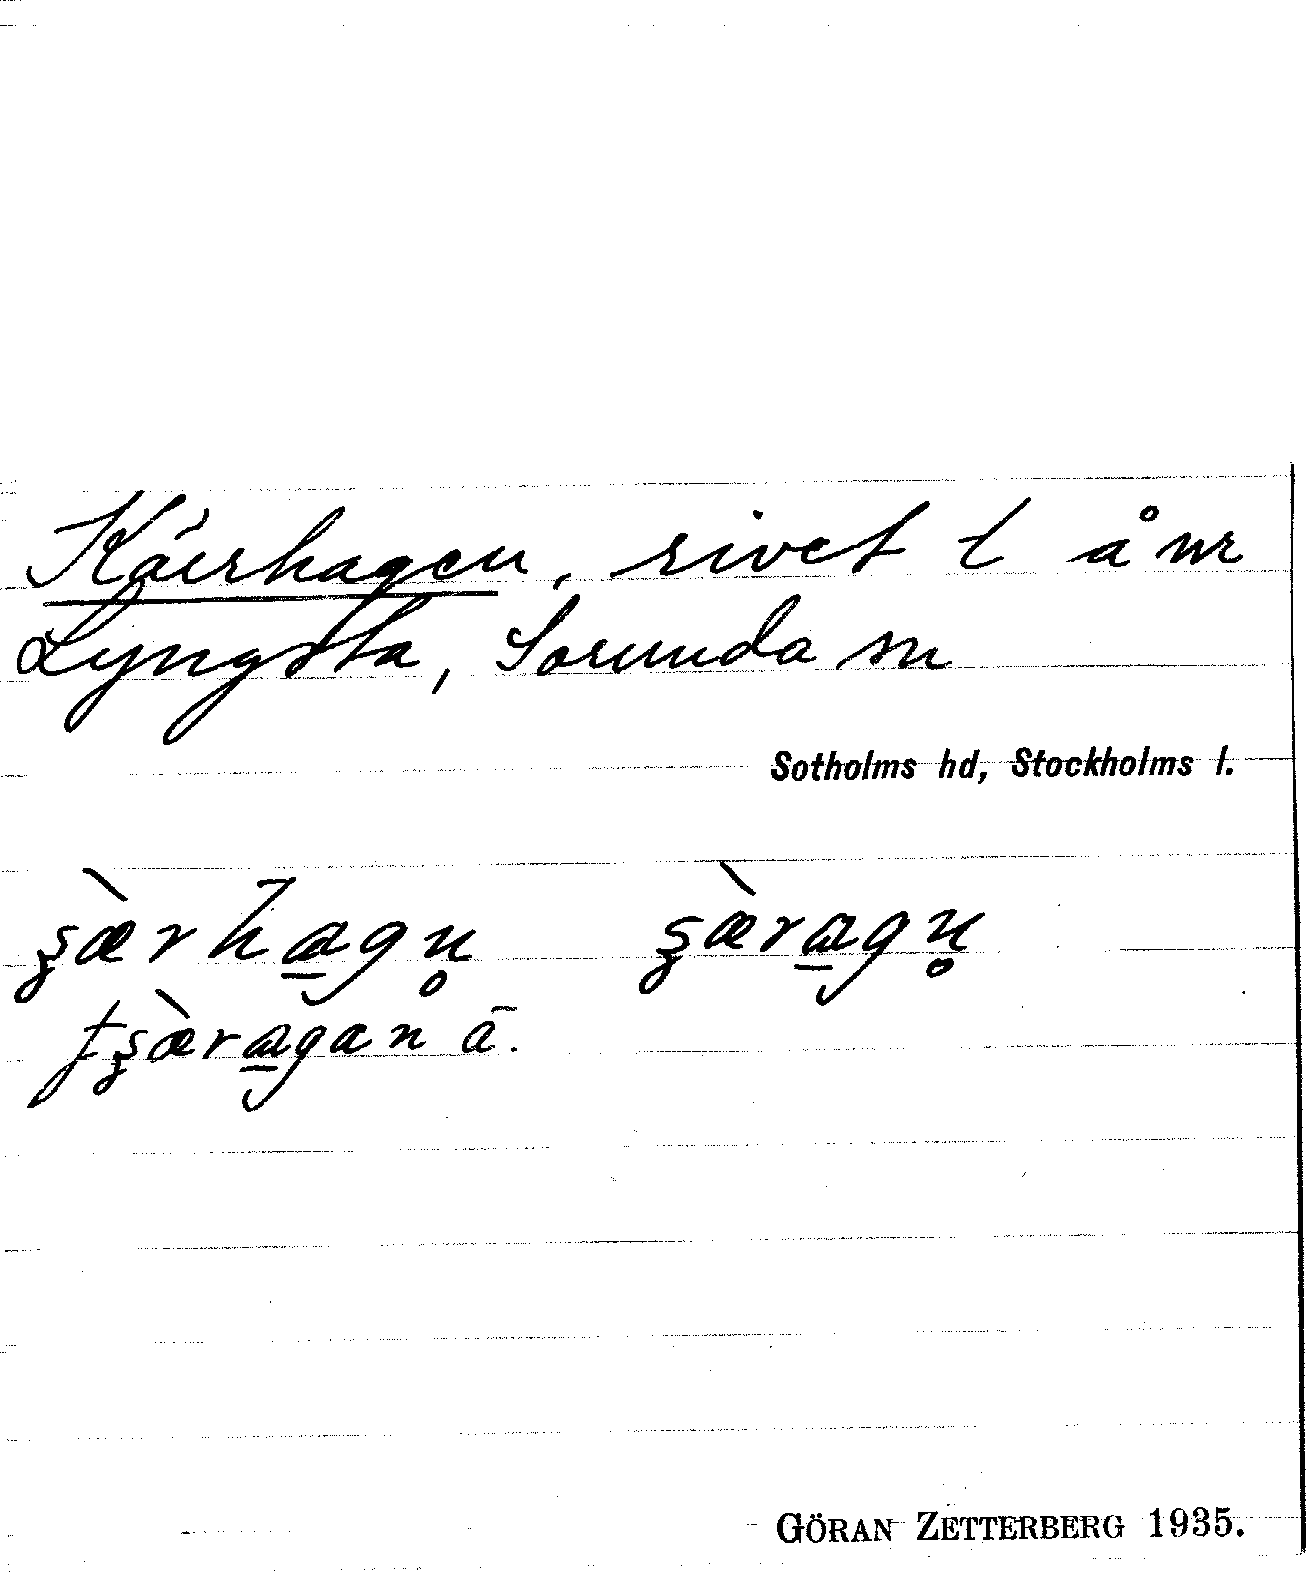 Kärrhagen, rivet t å nr
Lyngsta, Sorunda sn
Sotholms hd, Stockholms l.
ʂæ̀rhagn̥ ʂæ̀ragn̥
tʂæ̀ragan ā.
GÖRAN ZETTERBERG 1935.